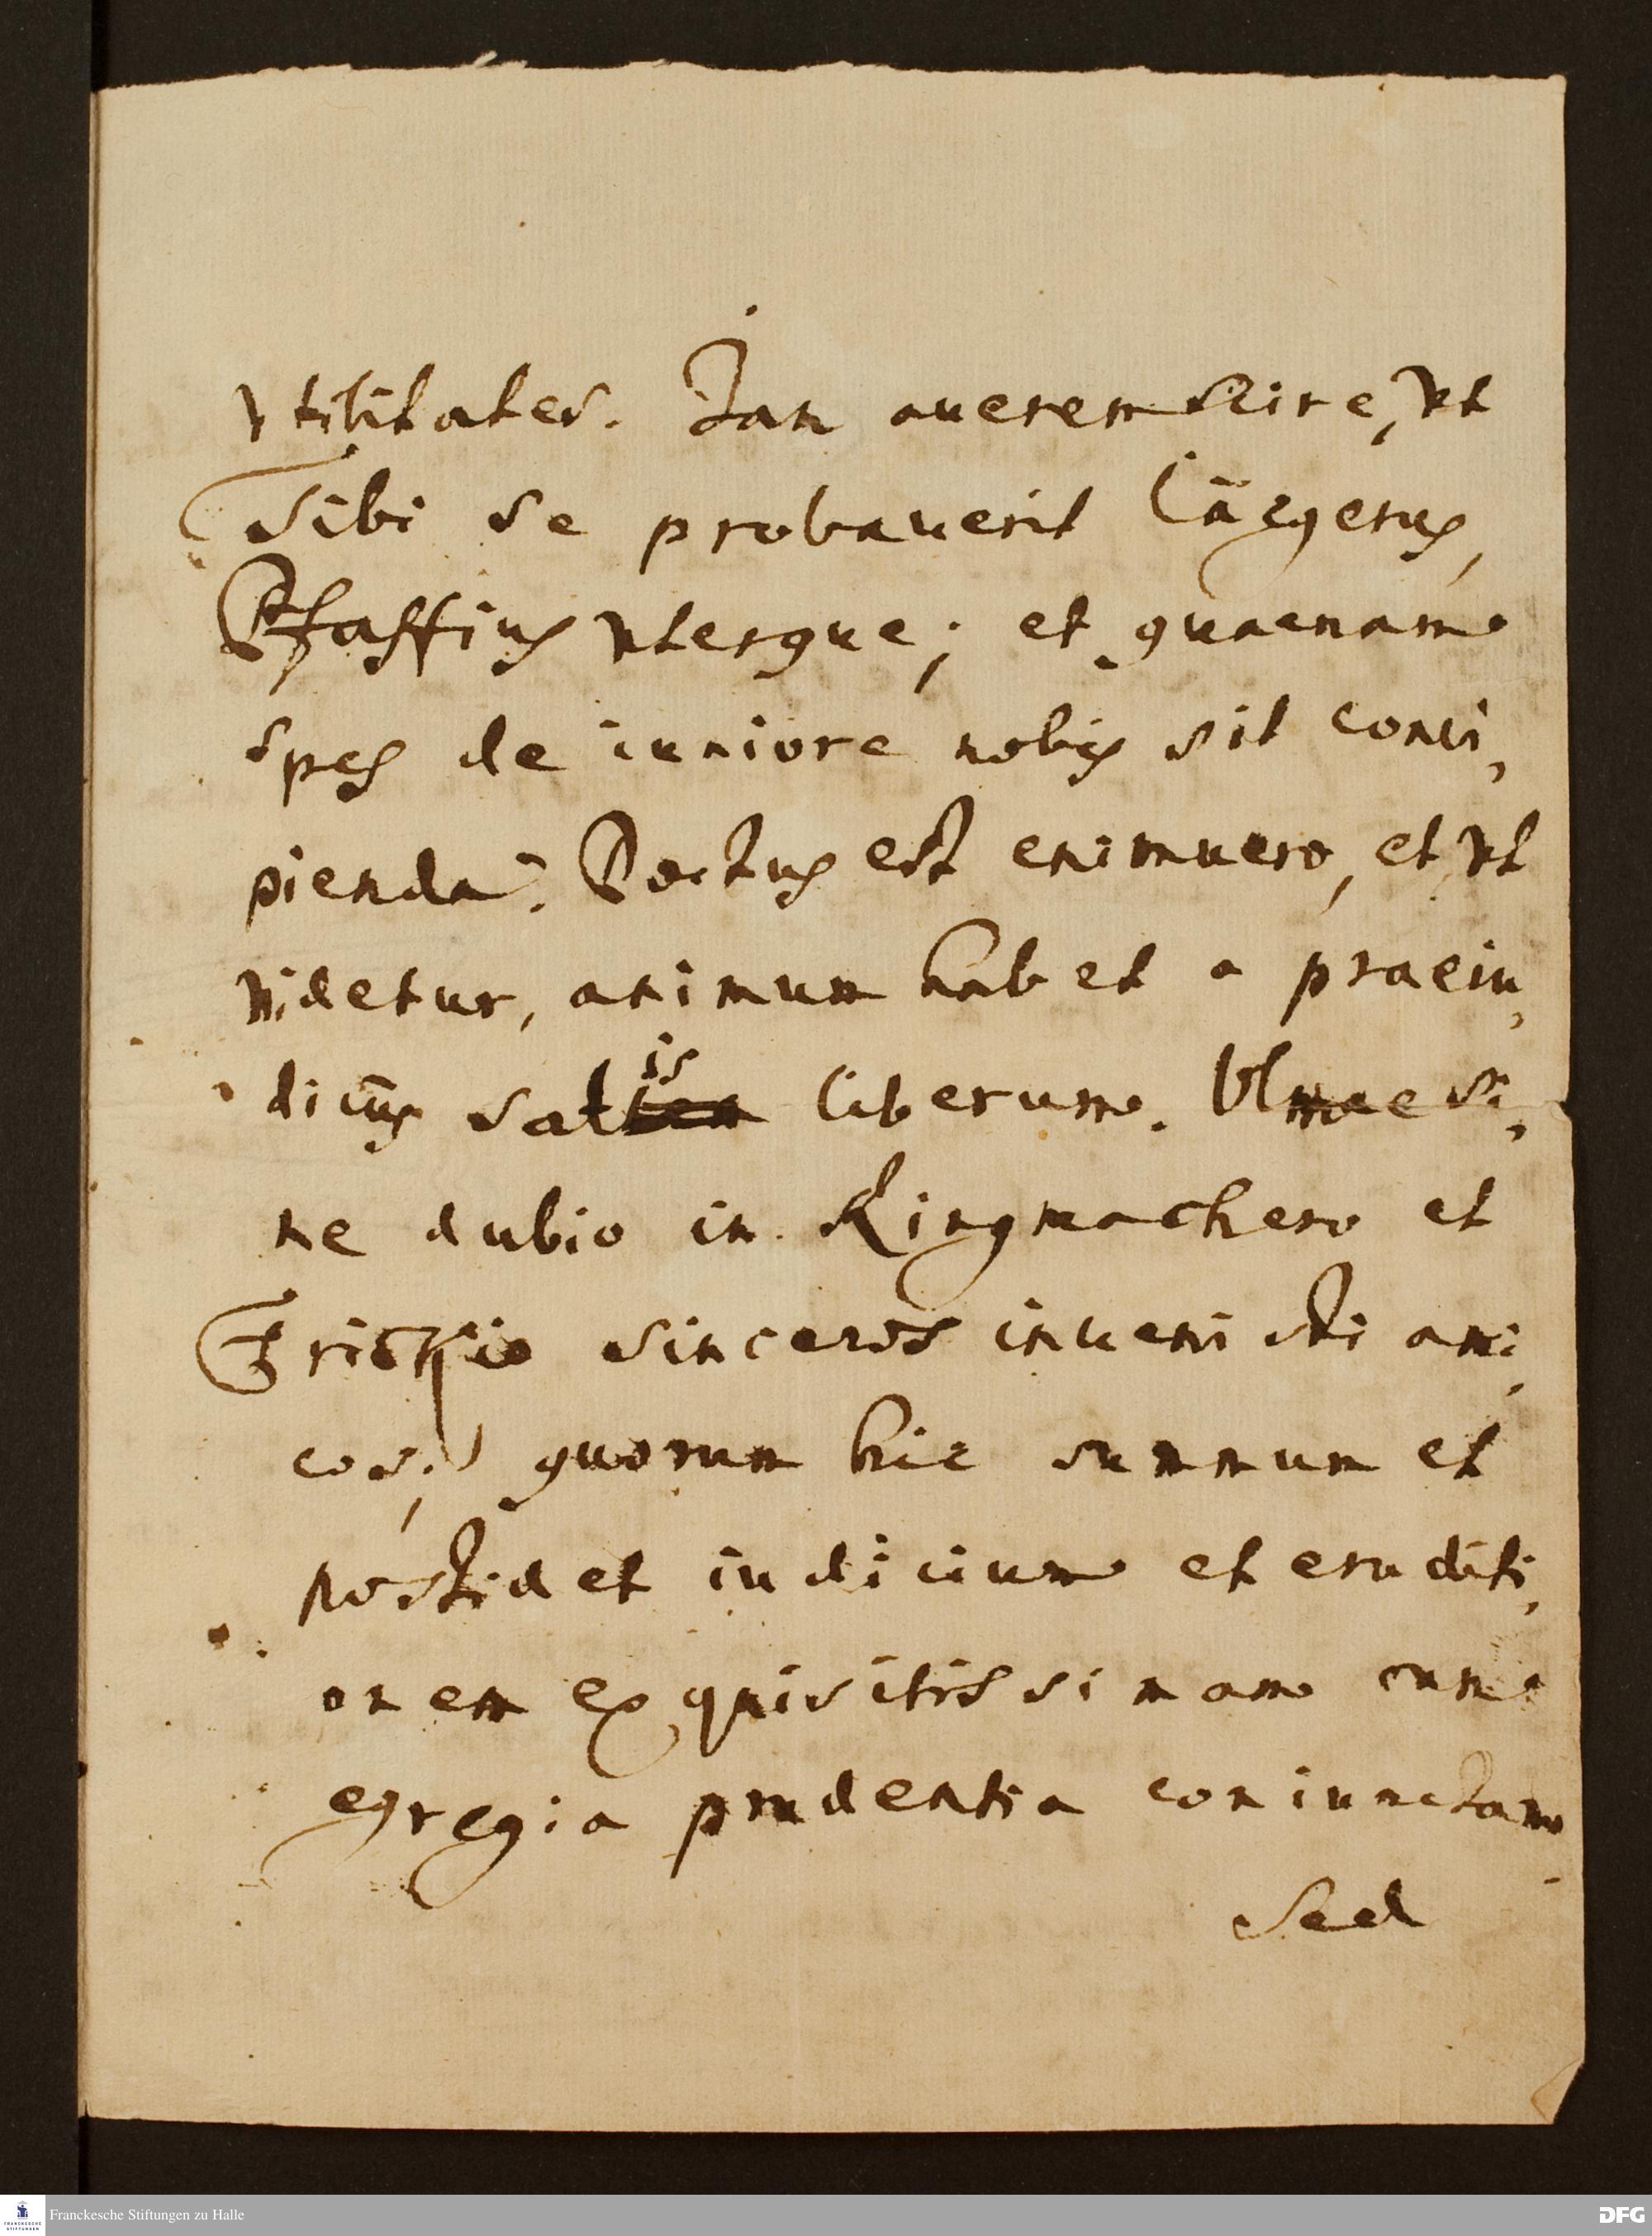 vtilitates. Jam auerem scire, vt
Tibi se probauerit Iaegerus,
Pfaffius vterque; et quaenam
spes de iuniore nobis sit conci,
pienda? Doctus est enimuero, et, vt
videtur, animum habet a praeiu,
diciis satis liberum. Vlmae si,
ne dubio in Ringmachero et
Frickio sinceros inuenisti ami,
cos, quorum hic summum et
possidet iudicium et eruditi,
onem exquisitissimam cum
egregia prudentia coniunctam
Sed
Franckesche Stiftungen zu Halle
DFG